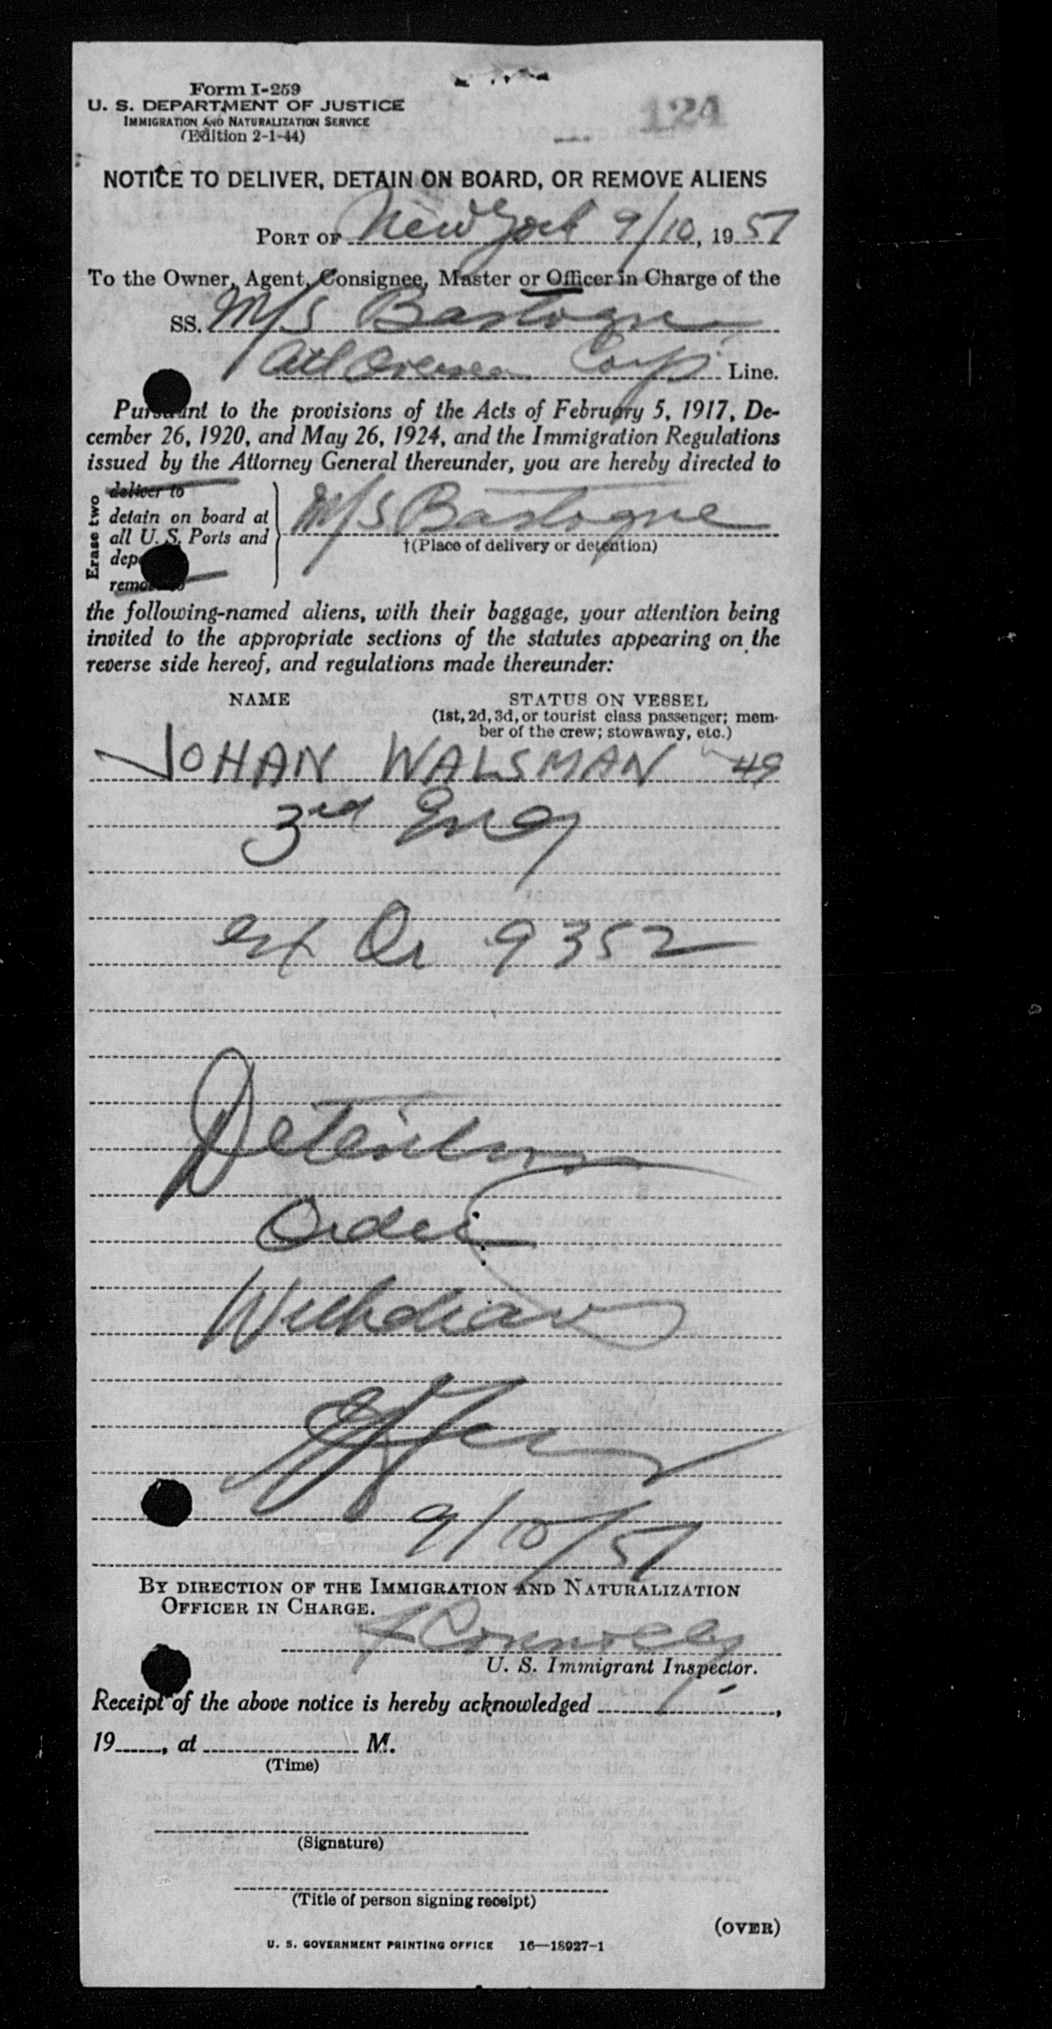 Form I-259
U. S. DEPARTMENT OF JUSTICE
IMMIGRATION AND NATURALIZATION SERVICE
(Edition 2-1-44)
124
NOTICE TO DELIVER, DETAIN ON BOARD, OR REMOVE ALIENS
PORT OF New York 9/10, 1951
To the Owner, Agent, Consignee, Master or Officer in Charge of the
SS. M/S Bastogne
Atl Overseas Corp Line.
Pursuant to the provisions of the Acts of February 5, 1917, De-
cember 26, 1920, and May 26, 1924, and the Immigration Regulations
issued by the Attorney General thereunder, you are hereby directed to
Erase two
deliver to
detain on board at
all U. S. Ports and
dep
remove to
M/S Bastogne
†(Place of delivery or detention)
the following-named aliens, with their baggage, your attention being
invited to the appropriate sections of the statutes appearing on the
reverse side hereof, and regulations made thereunder:
NAME STATUS ON VESSEL
(1st, 2d, 3d, or tourist class passenger; mem-
ber of the crew; stowaway, etc.)
JOHAN WALSMAN 49
3rd Eng
9352
Detention
Order
Withdrawn
9/10/51
BY DIRECTION OF THE IMMIGRATION AND NATURALIZATION
OFFICER IN CHARGE.
Connolly
U. S. Immigrant Inspector.
Receipt of the above notice is hereby acknowledged ,
19 , at M.
(Time)
(Signature)
(Title of person signing receipt)
(OVER)
U. S. GOVERNMENT PRINTING OFFICE 16—18927-1